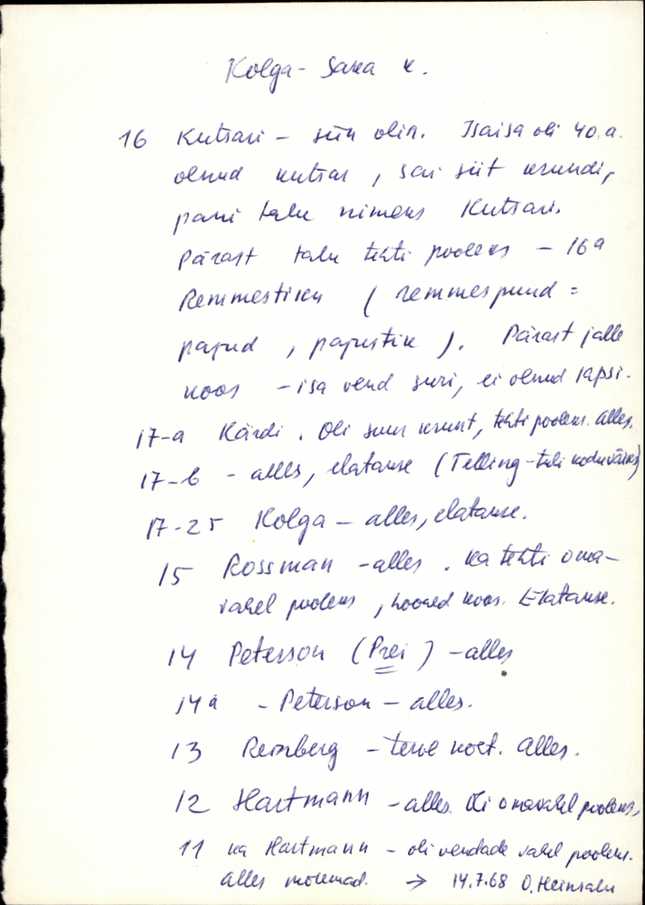 Kolga-Saka k.
16 Kutsari - siin olin. Isaisa oli 40.a.
olnud kutsar, sai siit krundi,
pani talu nimeks Kutsari.
Pärast talu tehti pooleks - 16a
Remmestiku (remmespuud =
pajud, pajustik). Pärast jälle
koos - isa vend suri, ei olnud lapsi.
17-a Kärdi. Oli suur krunt, tehti pooleks. Alles.
17-b - alles, elatakse (Telling - tuli koduväiks)
17-25 Kolga - alles, elatakse.
15 Rossman - alles. Ka tehti oma-
vahel pooleks, hooned koos. Elatakse.
14 Peterson (Prei) - alles
14a - Peterson - alles.
13 Reinberg - terve koht. Alles.
12 Hartmann - alles. Oli omavahel pooleks,
11 ka Hartmann - oli vendade vahel pooleks.
alles mõlemad. → 14.7.68 O. Heinsalu